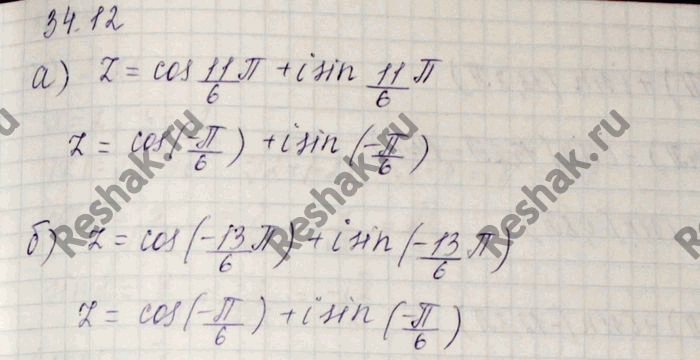 34.12
а) z = cos 11/6 π + i sin 11/6 π
z = cos(-π/6) + i sin(-π/6)
б) z = cos(-13/6 π) + i sin(-13/6 π)
z = cos(-π/6) + i sin(-π/6)
Reshak.ru
Reshak.ru
Reshak.ru